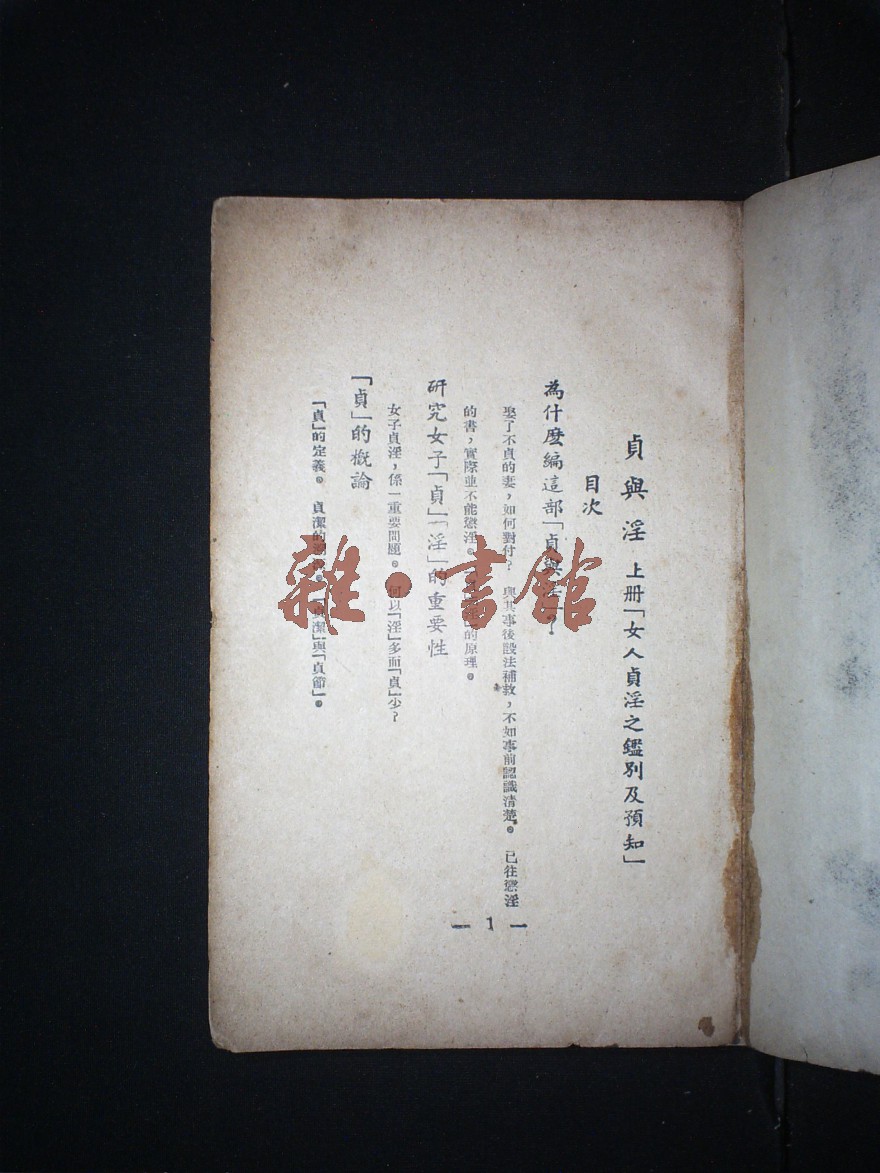 貞與淫 上册「女人貞淫之鑑別及預知」
目次
為什麽編這部「貞與淫」？
娶了不貞的妻，如何對付？ 與其事後設法補救，不如事前認識清楚。 已往懲淫
的書，實際並不能懲淫。 的原理。
研究女子「貞」「淫」的重要性
女子貞淫，係一重要問題。 何以「淫」多而「貞」少？
「貞」的概論
「貞」的定義。 貞潔的 「貞潔」與「貞節」。
— 1 —
雜·書館